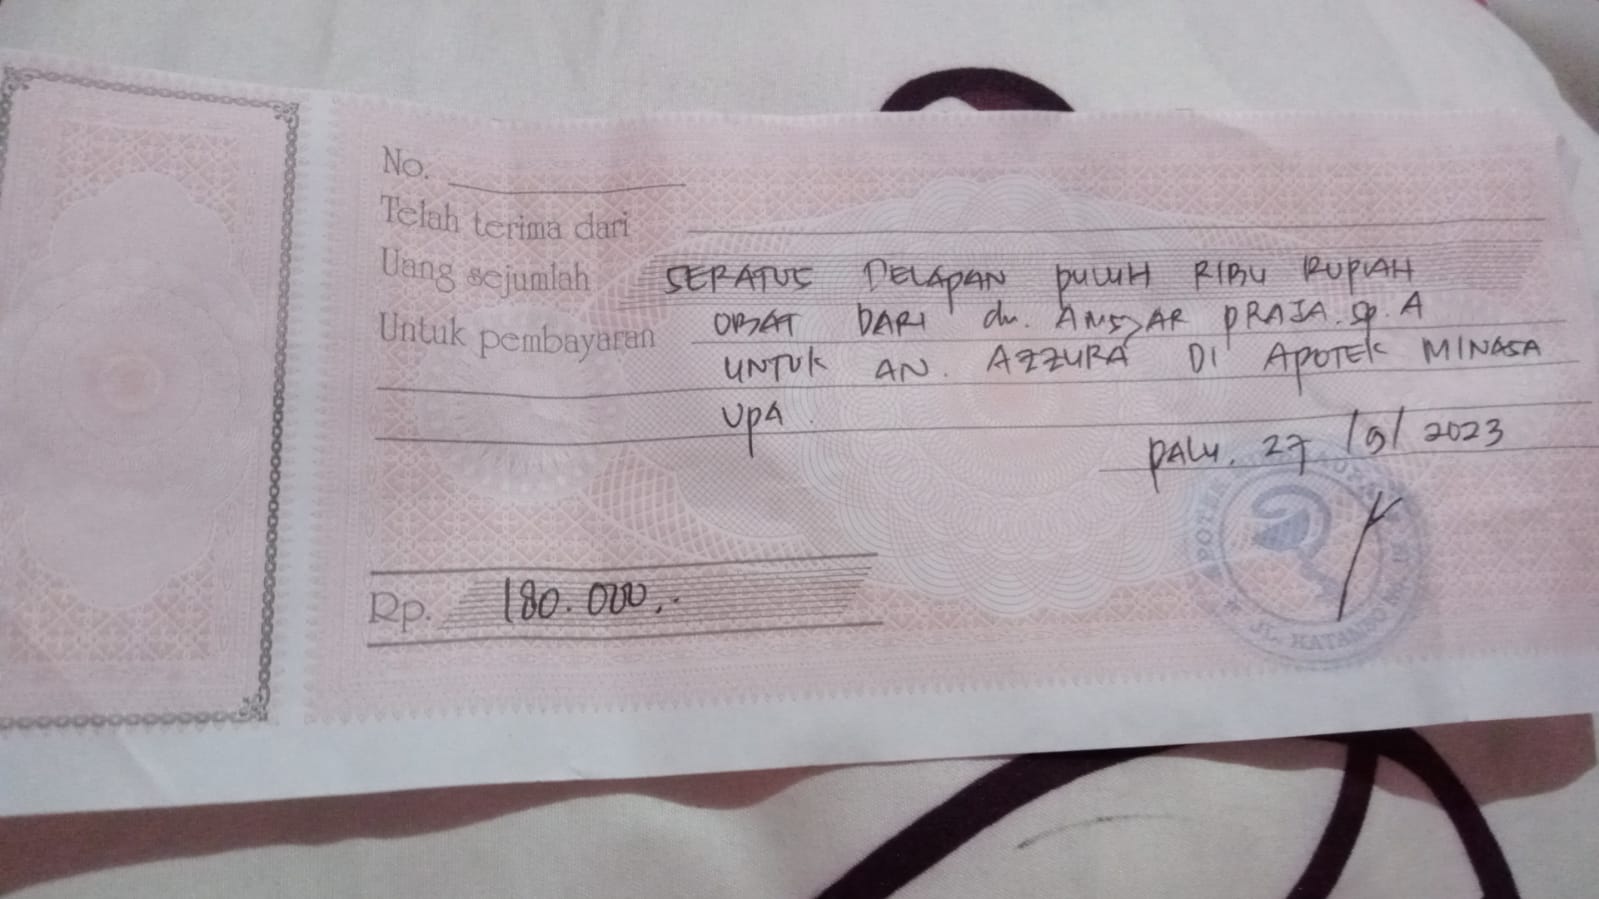 No.
Telah terima dari
Uang sejumlah SERATUS DELAPAN puluH RIBU RUPIAH
Untuk pembayaran OBAT DARI dr. ANSAR PRAJA. Sp. A
UNTUK AN. AZZURA DI APOTEK MINASA
UPA.
PALU. 27 /9/ 2023
Rp. 180.000,-
JL.